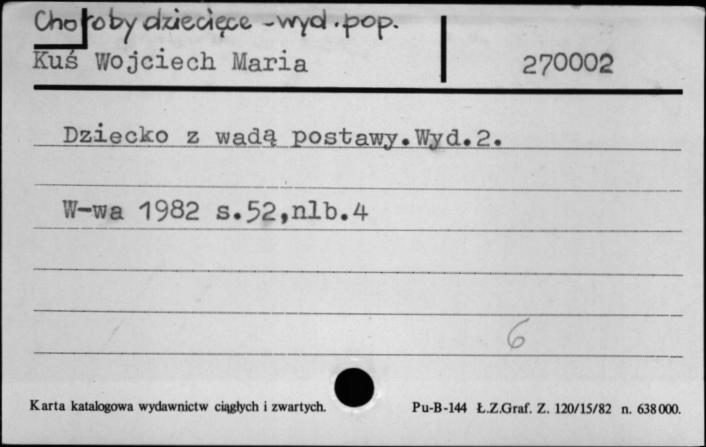 Choroby dziecięce - wyd. pop.
Kuś Wojciech Maria 270002
Dziecko z wadą postawy.Wyd.2.
W-wa 1982 s.52,nlb.4
6
Karta katalogowa wydawnictw ciągłych i zwartych. Pu-B-144 Ł.Z.Graf. Z. 120/15/82 n. 638000.